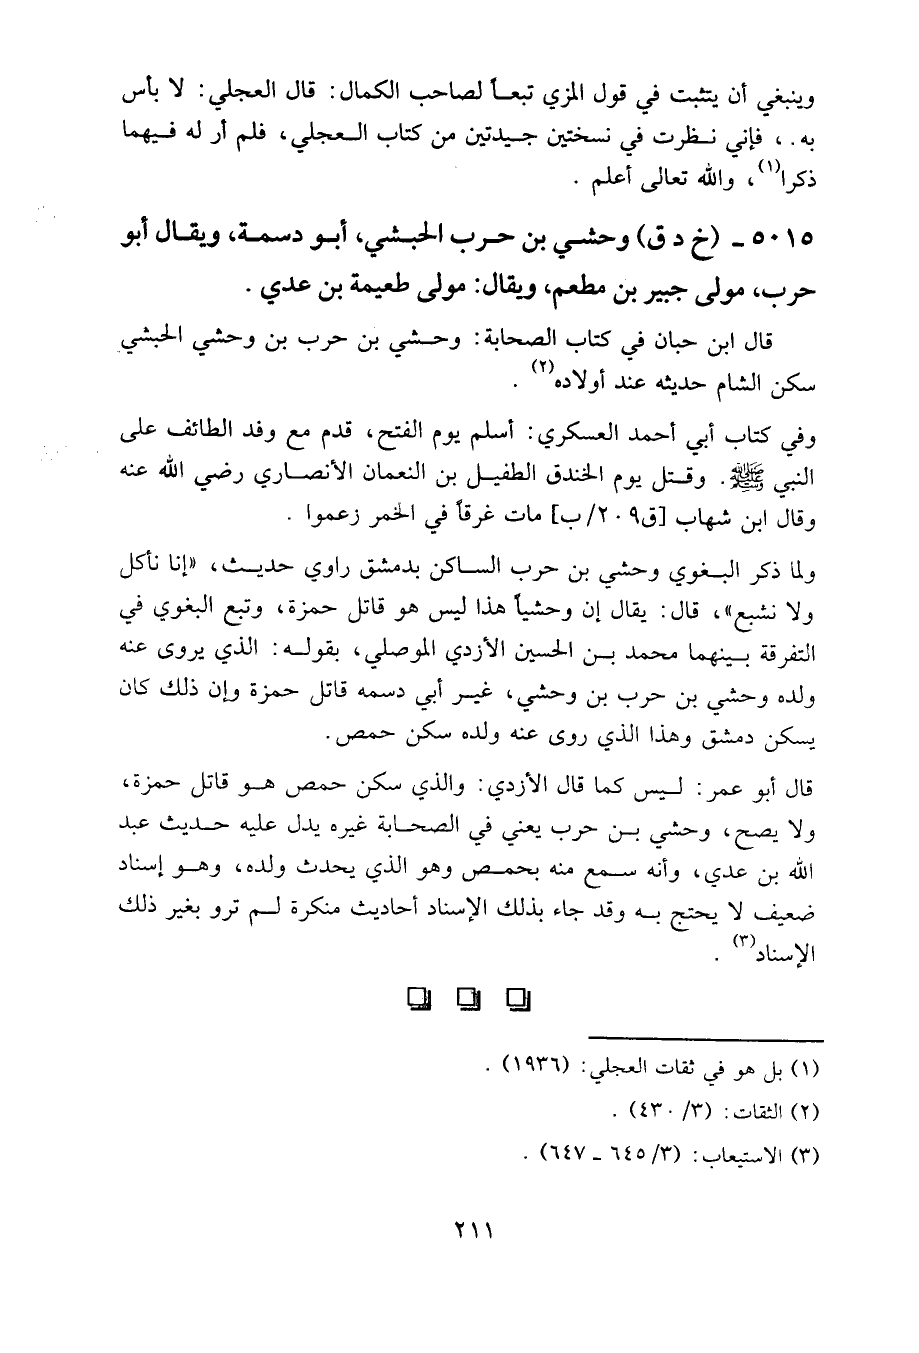 وينبغي أن يتثبت في قول المزي تبعاً لصاحب الكمال: قال العجلي: لا بأس
به. ، فإني نظرت في نسختين جيدتين من كتاب العجلي، فلم أر له فيهما
ذكرا(١)، والله تعالى أعلم .
٥٠١٥ - (خ د ق) وحشي بن حرب الحبشي، أبو دسمة، ويقال أبو
حرب، مولى جبير بن مطعم، ويقال: مولى طعيمة بن عدي .
قال ابن حبان في كتاب الصحابة: وحشي بن حرب بن وحشي الحبشي
سكن الشام حديثه عند أولاده(٢) .
وفي كتاب أبي أحمد العسكري: أسلم يوم الفتح، قدم مع وفد الطائف على
النبي ﷺ. وقتل يوم الخندق الطفيل بن النعمان الأنصاري رضي الله عنه
وقال ابن شهاب [ق٢٠٩/ب] مات غرقاً في الخمر زعموا .
ولما ذكر البغوي وحشي بن حرب الساكن بدمشق راوي حديث، «إنا نأكل
ولا نشبع»، قال: يقال إن وحشياً هذا ليس هو قاتل حمزة، وتبع البغوي في
التفرقة بينهما محمد بن الحسين الأزدي الموصلي، بقوله: الذي يروى عنه
ولده وحشي بن حرب بن وحشي، غير أبي دسمه قاتل حمزة وإن ذلك كان
يسكن دمشق وهذا الذي روى عنه ولده سكن حمص.
قال أبو عمر: ليس كما قال الأزدي: والذي سكن حمص هو قاتل حمزة،
ولا يصح، وحشي بن حرب يعني في الصحابة غيره يدل عليه حديث عبد
الله بن عدي، وأنه سمع منه بحمص وهو الذي يحدث ولده، وهو إسناد
ضعيف لا يحتج به وقد جاء بذلك الإسناد أحاديث منكرة لم ترو بغير ذلك
الإسناد(٣) .
(١) بل هو في ثقات العجلي: (١٩٣٦) .
(٢) الثقات: (٣/ ٤٣٠) .
(٣) الاستيعاب: (٣/ ٦٤٥ - ٦٤٧) .
٢١١